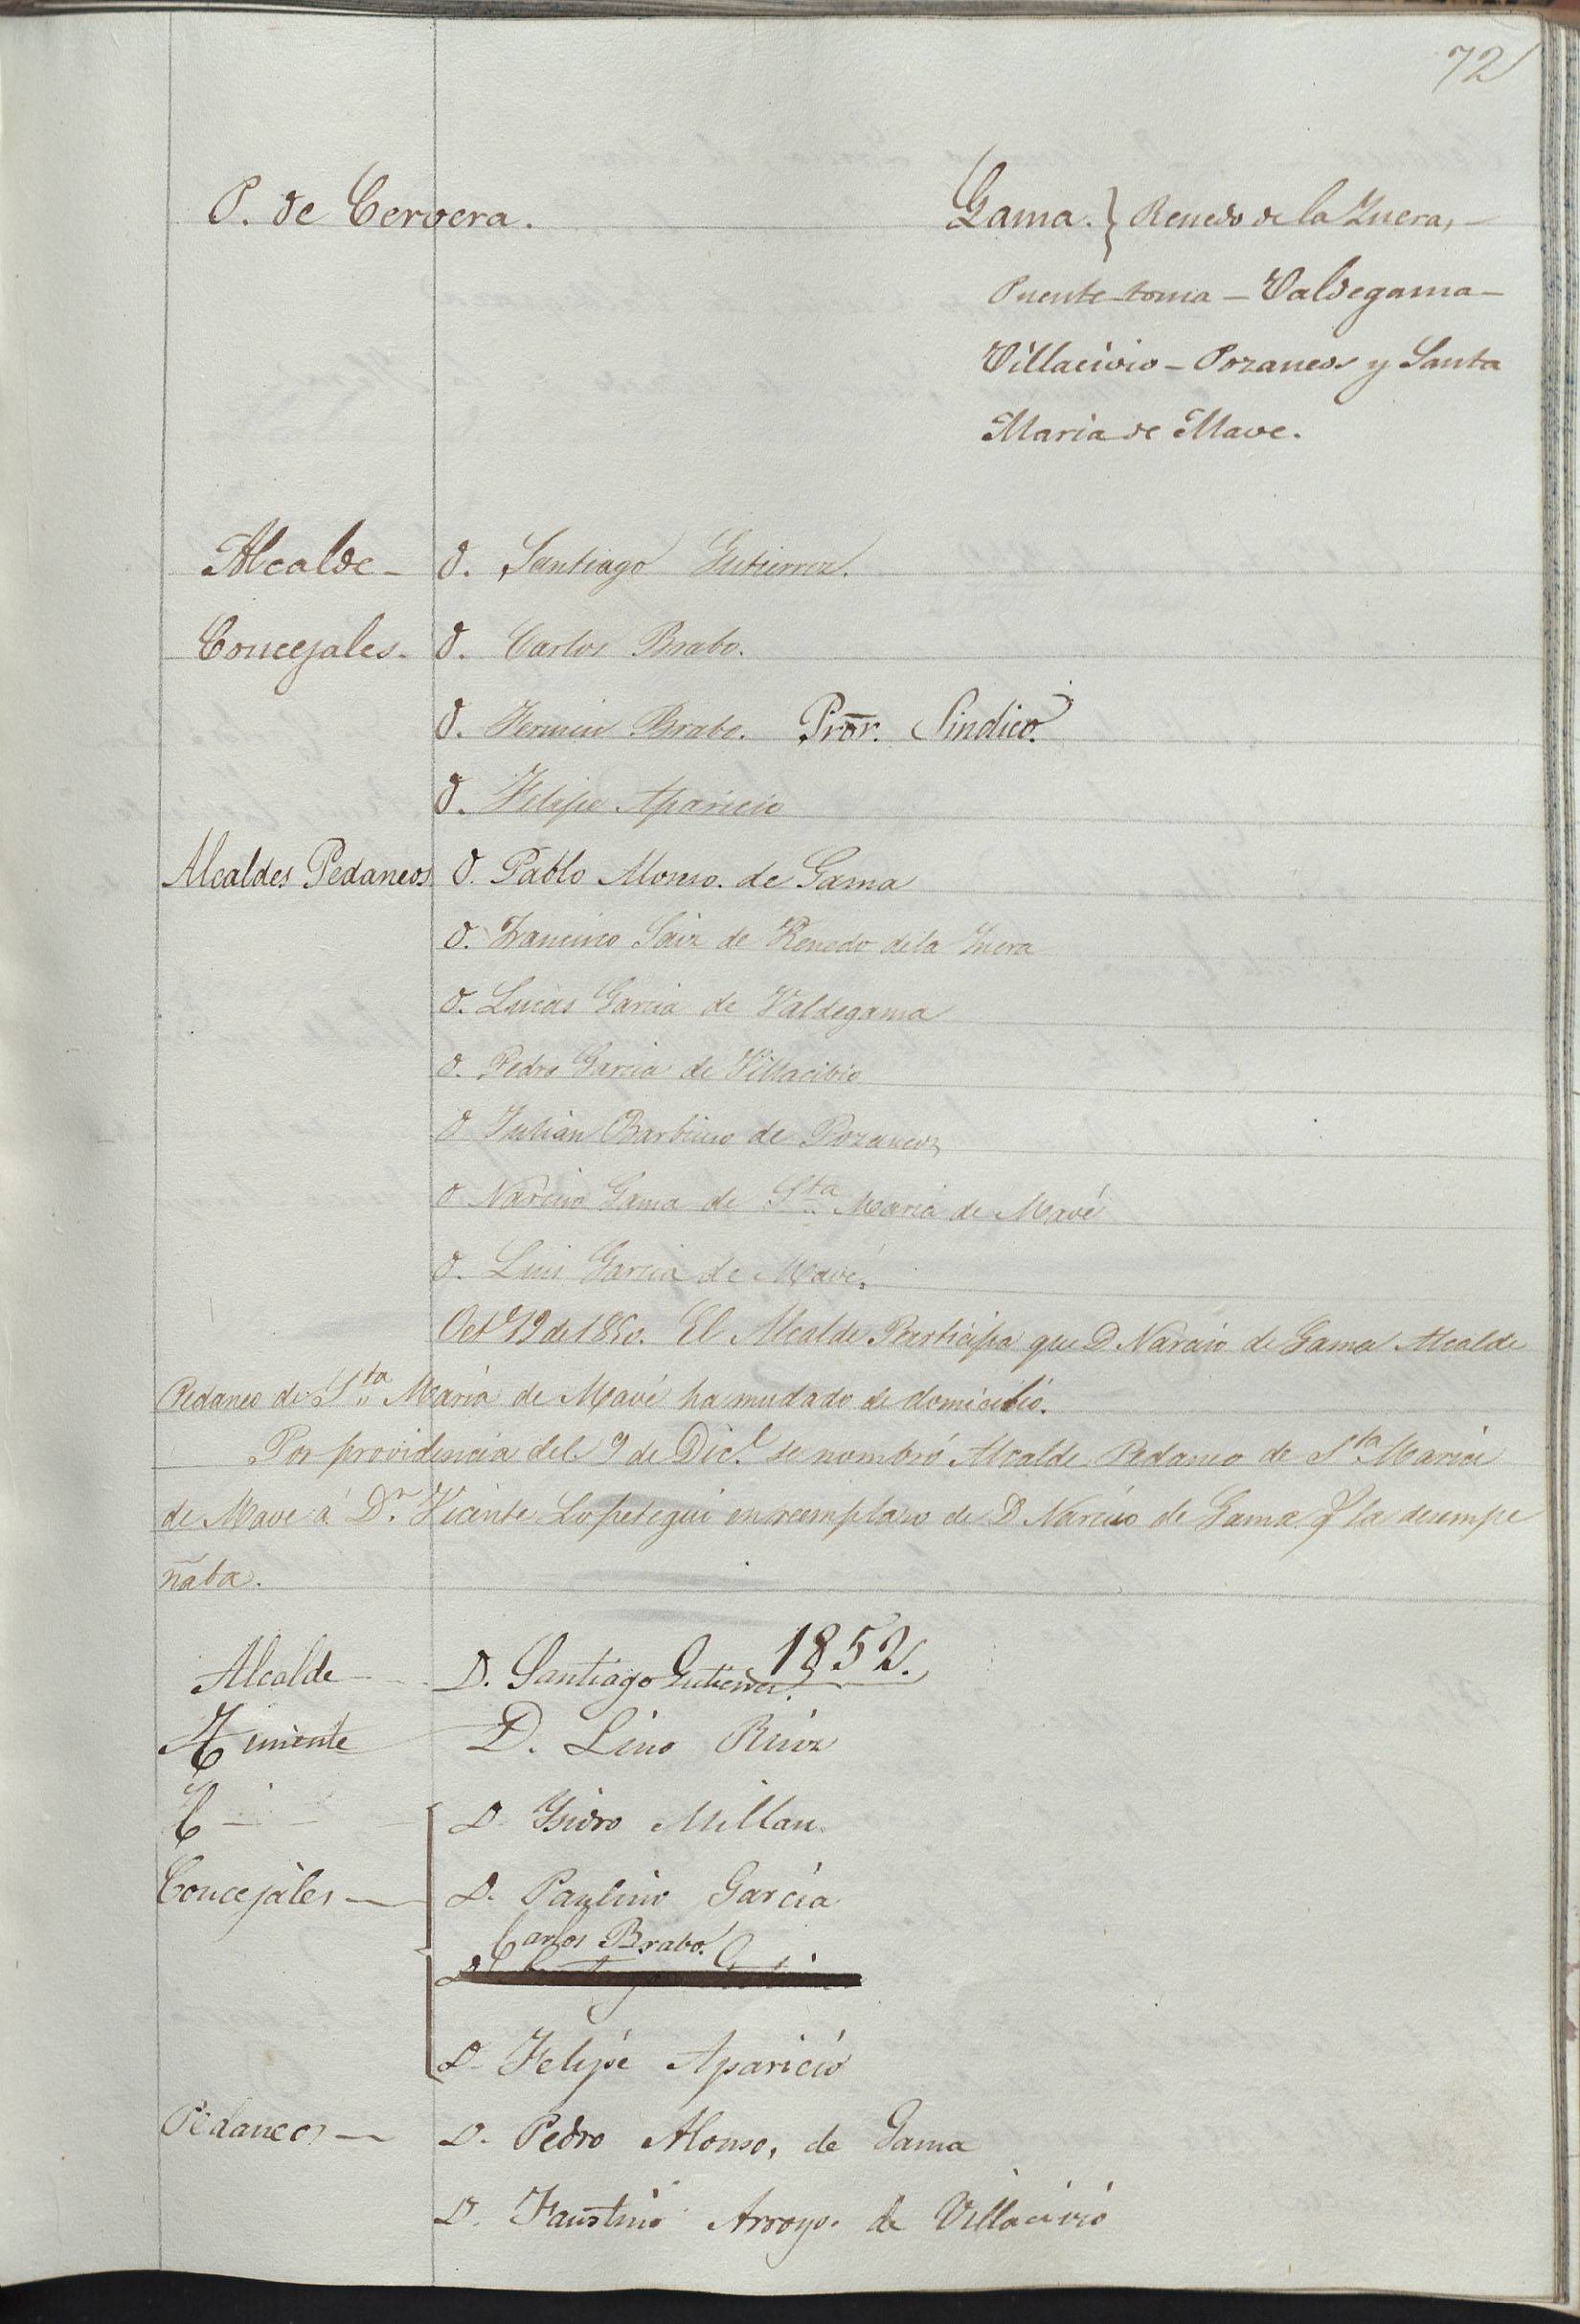 72
P. de Cervera.
Gama. } Renedo de la Inera, —
Puente toma — Valdegama —
Villacivio — Pozancos y Santa
Maria de Mave.
Alcalde — D. Santiago Gutierrez.
Concejales. D. Carlos Brabo.
D. Fermin Brabo. Pror. Sindico.
D. Felipe Aparicio
Alcaldes Pedaneos D. Pablo Alonso. de Gama
D. Francisco Saiz de Renedo de la Inera
D. Lucas Garcia de Valdegama
D. Pedro Garcia de Villacibio
D Julian Barbino de Pozancos
D Narciso Gama de Sta Maria de Mavé
D. Luis Garcia de Mavé.
Oct.e 19 de 1850. El Alcalde Participa que D. Narciso de Gama Alcalde
Pedaneo de Sta Maria de Mavé ha mudado de domicilio.
Por providencia del 9 de Dic.e se nombró Alcalde Pedaneo de Sta Maria
de Mave á Dn. Vicente Lopetegui en reemplazo de D Narciso de Gama q la desempe
ñaba.
1852.
Alcalde — D. Santiago Gutierrez.
Teniente D. Lino Ruiz
C — D. Ysidro Millan.
Concejales — D. Paulino Garcia
Carlos Brabo.
D.
D. Felipe Aparicio
Pedaneos — D. Pedro Alonso, de Gama
D. Faustino Arroyo. de Villacivio